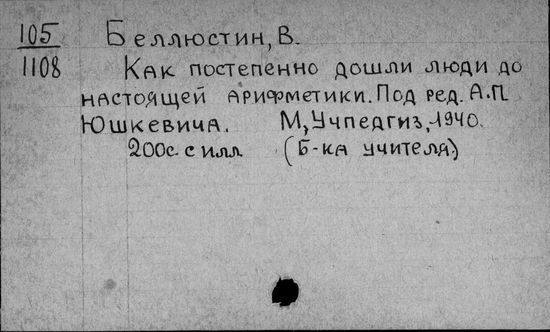 105 Беллюстин, В.
1108 Как постепенно дошли люди до
настоящей арифметики. Под ред. А.П
Юшкевича. М, Учпедгиз, 1940.
200с. с илл. (Б-ка учителя.)